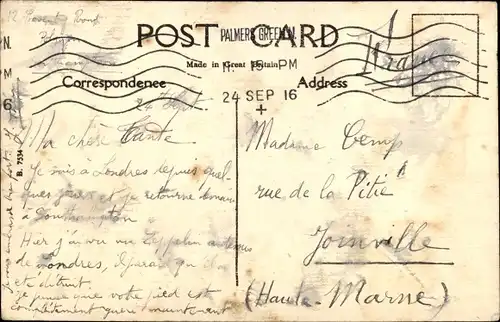 POST CARD
PALMERS GREEN. N.
Made in Great Britain
Correspondence
Address
PM
24 SEP 16
B. 7534
France
24 Sept
Ma chère Tante
Je suis à Londres depuis quel-
ques jours et je retourne demain
à Southampton
Hier j'ai vu un Zeppelin au dessus
de Londres, il parait qu'il a
été détruit.
Je pense que votre pied est
complètement guéri maintenant
Madame Comp
rue de la Pitié
Joinville
(Haute-Marne)